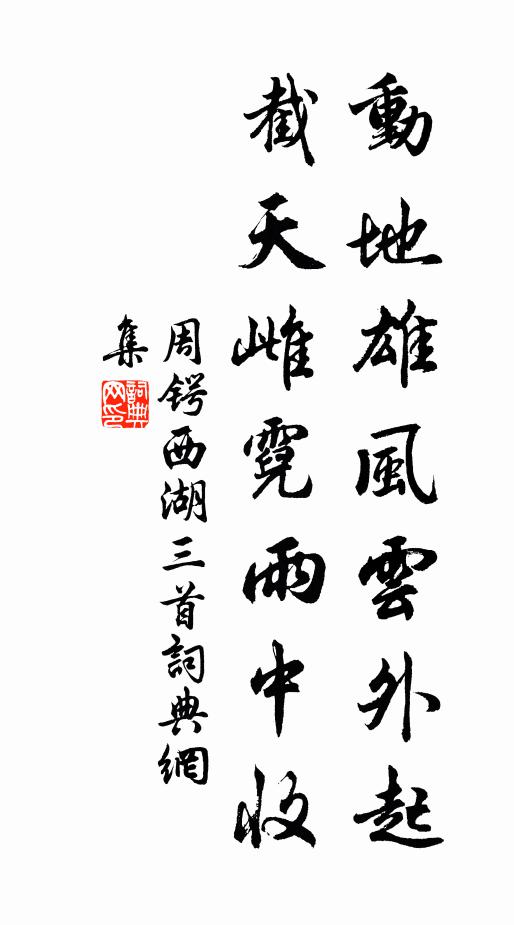 動地雄風雲外起
截天雌霓雨中收
周锷西湖三首詞典網
集
詞典
网印